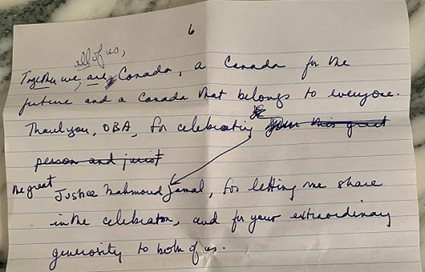 6
all of us,
Together we, are Canada, a Canada for the
future and a Canada that belongs to everyone.
Thank you, OBA, for celebrating this great
person and jurist
the great Justice Mahmoud Jamal, for letting me share
in the celebration, and for your extraordinary
generosity to both of us.